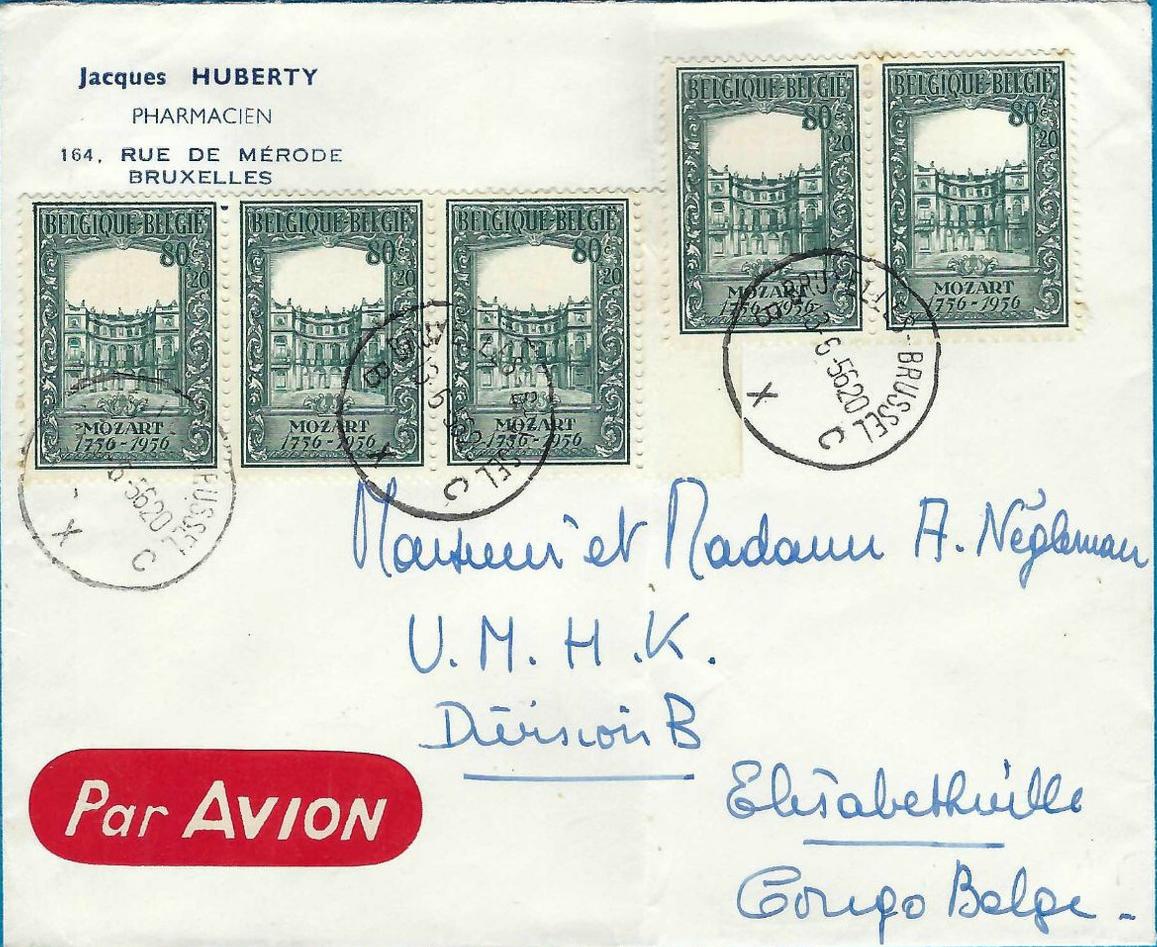 Jacques HUBERTY
PHARMACIEN
164, RUE DE MÉRODE
BRUXELLES
BELGIQUE-BELGIË
80 c
20
MOZART
1756-1956
BELGIQUE-BELGIË
80 c
20
MOZART
1756-1956
BELGIQUE-BELGIË
80 c
20
MOZART
1756-1956
BELGIQUE-BELGIË
80 c
20
MOZART
1756-1956
BELGIQUE-BELGIË
80 c
20
MOZART
1756-1956
BRUXELLES-BRUSSEL
-5620
B X C
BRUSSEL
B X C
BRUSSEL
-5620
X C
Monsieur et Madame A. Négleman
U.M.H.K.
Division B
Elisabethville
Congo Belge -
Par AVION